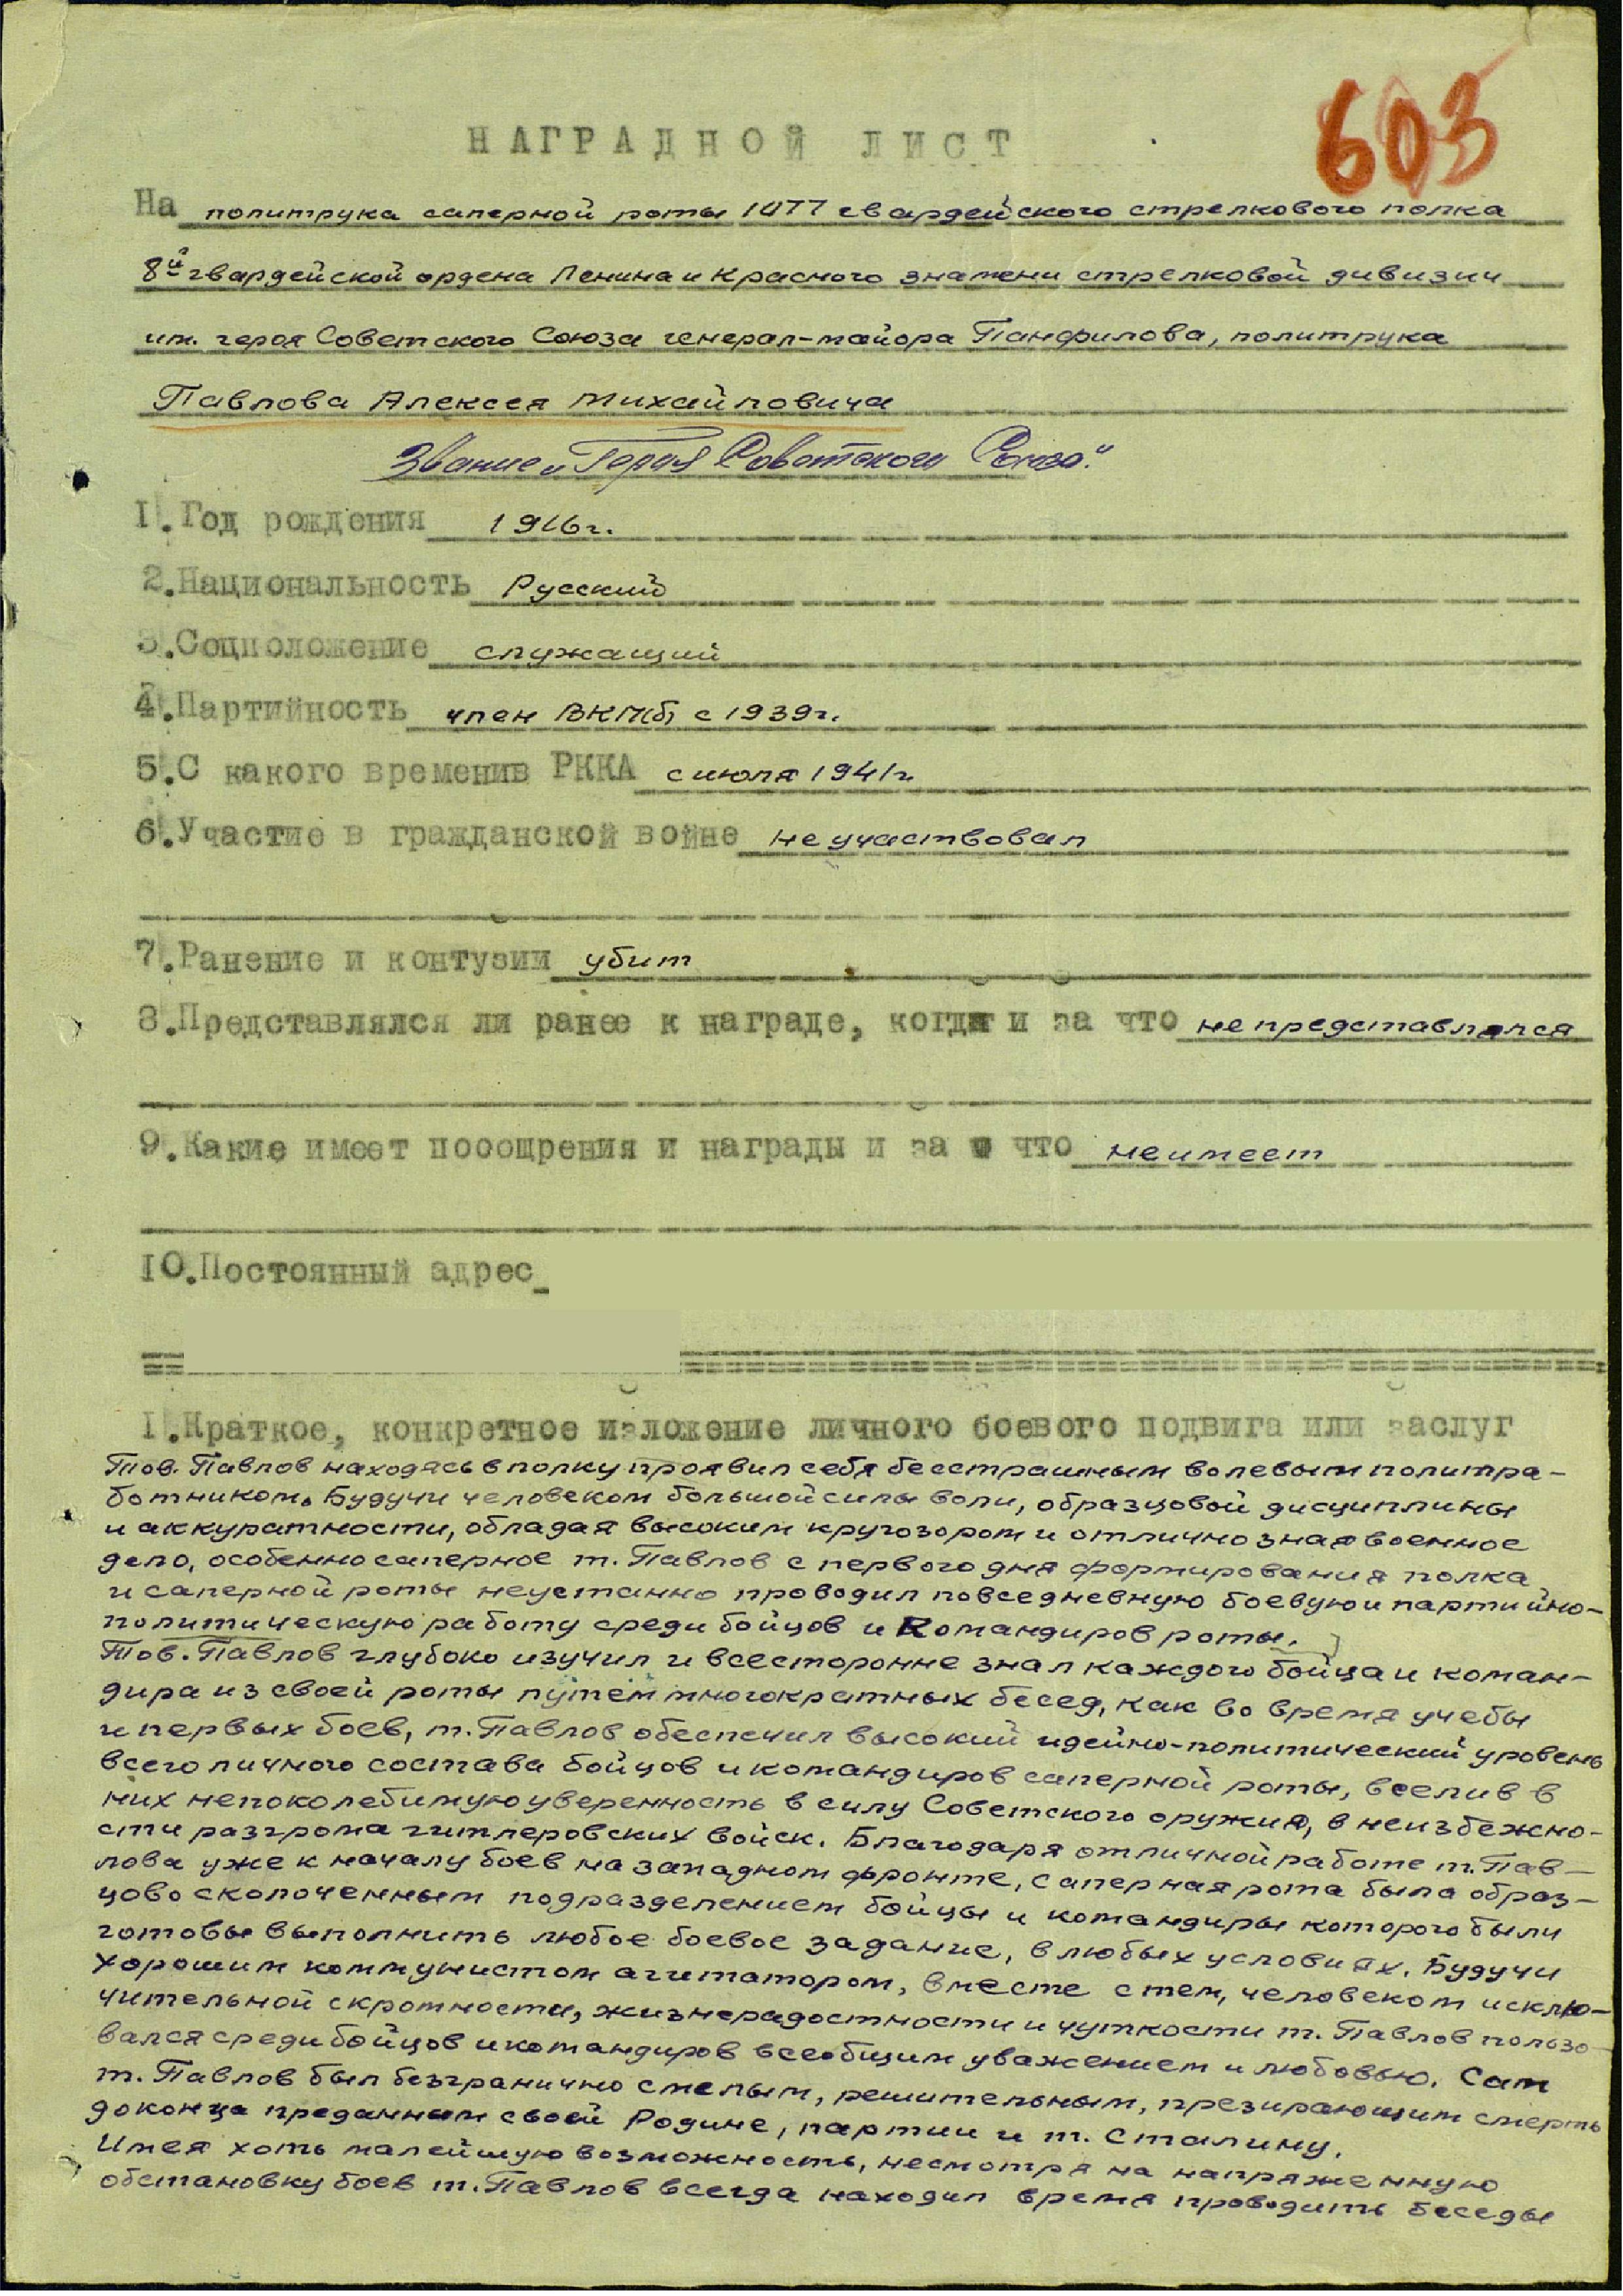 603
НАГРАДНОЙ ЛИСТ
На политрука саперной роты 1077 гвардейского стрелкового полка
8й гвардейской ордена Ленина и Красного знамени стрелковой дивизии
им. героя Советского Союза генерал-майора Панфилова, политрука
Павлова Алексея Михайловича
Звание „Героя Советского Союза".
1. Год рождения 1916г.
2. Национальность Русский
3. Соцположение служащий
4. Партийность член ВКП(б) с 1939г.
5. С какого временив РККА с июля 1941г.
6. Участие в гражданской войне не участвовал
7. Ранение и контузии убит
8. Представлялся ли ранее к награде, когда и за что не представлялся
9. Какие имеет поощрения и награды и за что не имеет
10. Постоянный адрес
1. Краткое, конкретное изложение личного боевого подвига или заслуг
Тов. Павлов находясь в полку проявил себя бесстрашным волевым политра-
ботником. Будучи человеком большой силы воли, образцовой дисциплины
и аккуратности, обладая высоким кругозором и отлично зная военное
дело, особенно саперное т. Павлов с первого дня формирования полка
и саперной роты неустанно проводил повседневную боевую и партийно-
политическую работу среди бойцов и командиров роты.
Тов. Павлов глубоко изучил и всесторонне знал каждого бойца и коман-
дира из своей роты путем многократных бесед, как во время учебы
и первых боев, т. Павлов обеспечил высокий идейно-политический уровень
всего личного состава бойцов и командиров саперной роты, вселив в
них непоколебимую уверенность в силу Советского оружия, в неизбежно-
сти разгрома гитлеровских войск. Благодаря отличной работе т. Пав-
лова уже к началу боев на западном фронте, саперная рота была образ-
цово сколоченным подразделением бойцы и командиры которого были
готовы выполнить любое боевое задание, в любых условиях. Будучи
хорошим коммунистом агитатором, вместе с тем, человеком исклю-
чительной скромности, жизнерадостности и чуткости т. Павлов пользо-
вался среди бойцов и командиров всеобщим уважением и любовью. Сам
т. Павлов был безгранично смелым, решительным, презирающим смерть
доконца преданным своей Родине, партии и т. Сталину.
Имея хоть малейшую возможность, несмотря на напряженную
обстановку боев т. Павлов всегда находил время проводить беседы